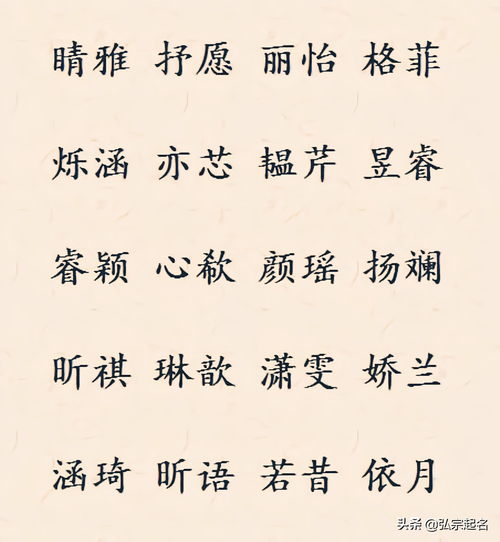 晴雅 抒愿 丽怡 格菲
烁涵 亦芯 韫芹 昱睿
睿颖 心欷 颜瑶 扬斓
昕祺 琳歆 潇雯 娇兰
涵琦 昕语 若昔 依月
头条 @弘宗起名